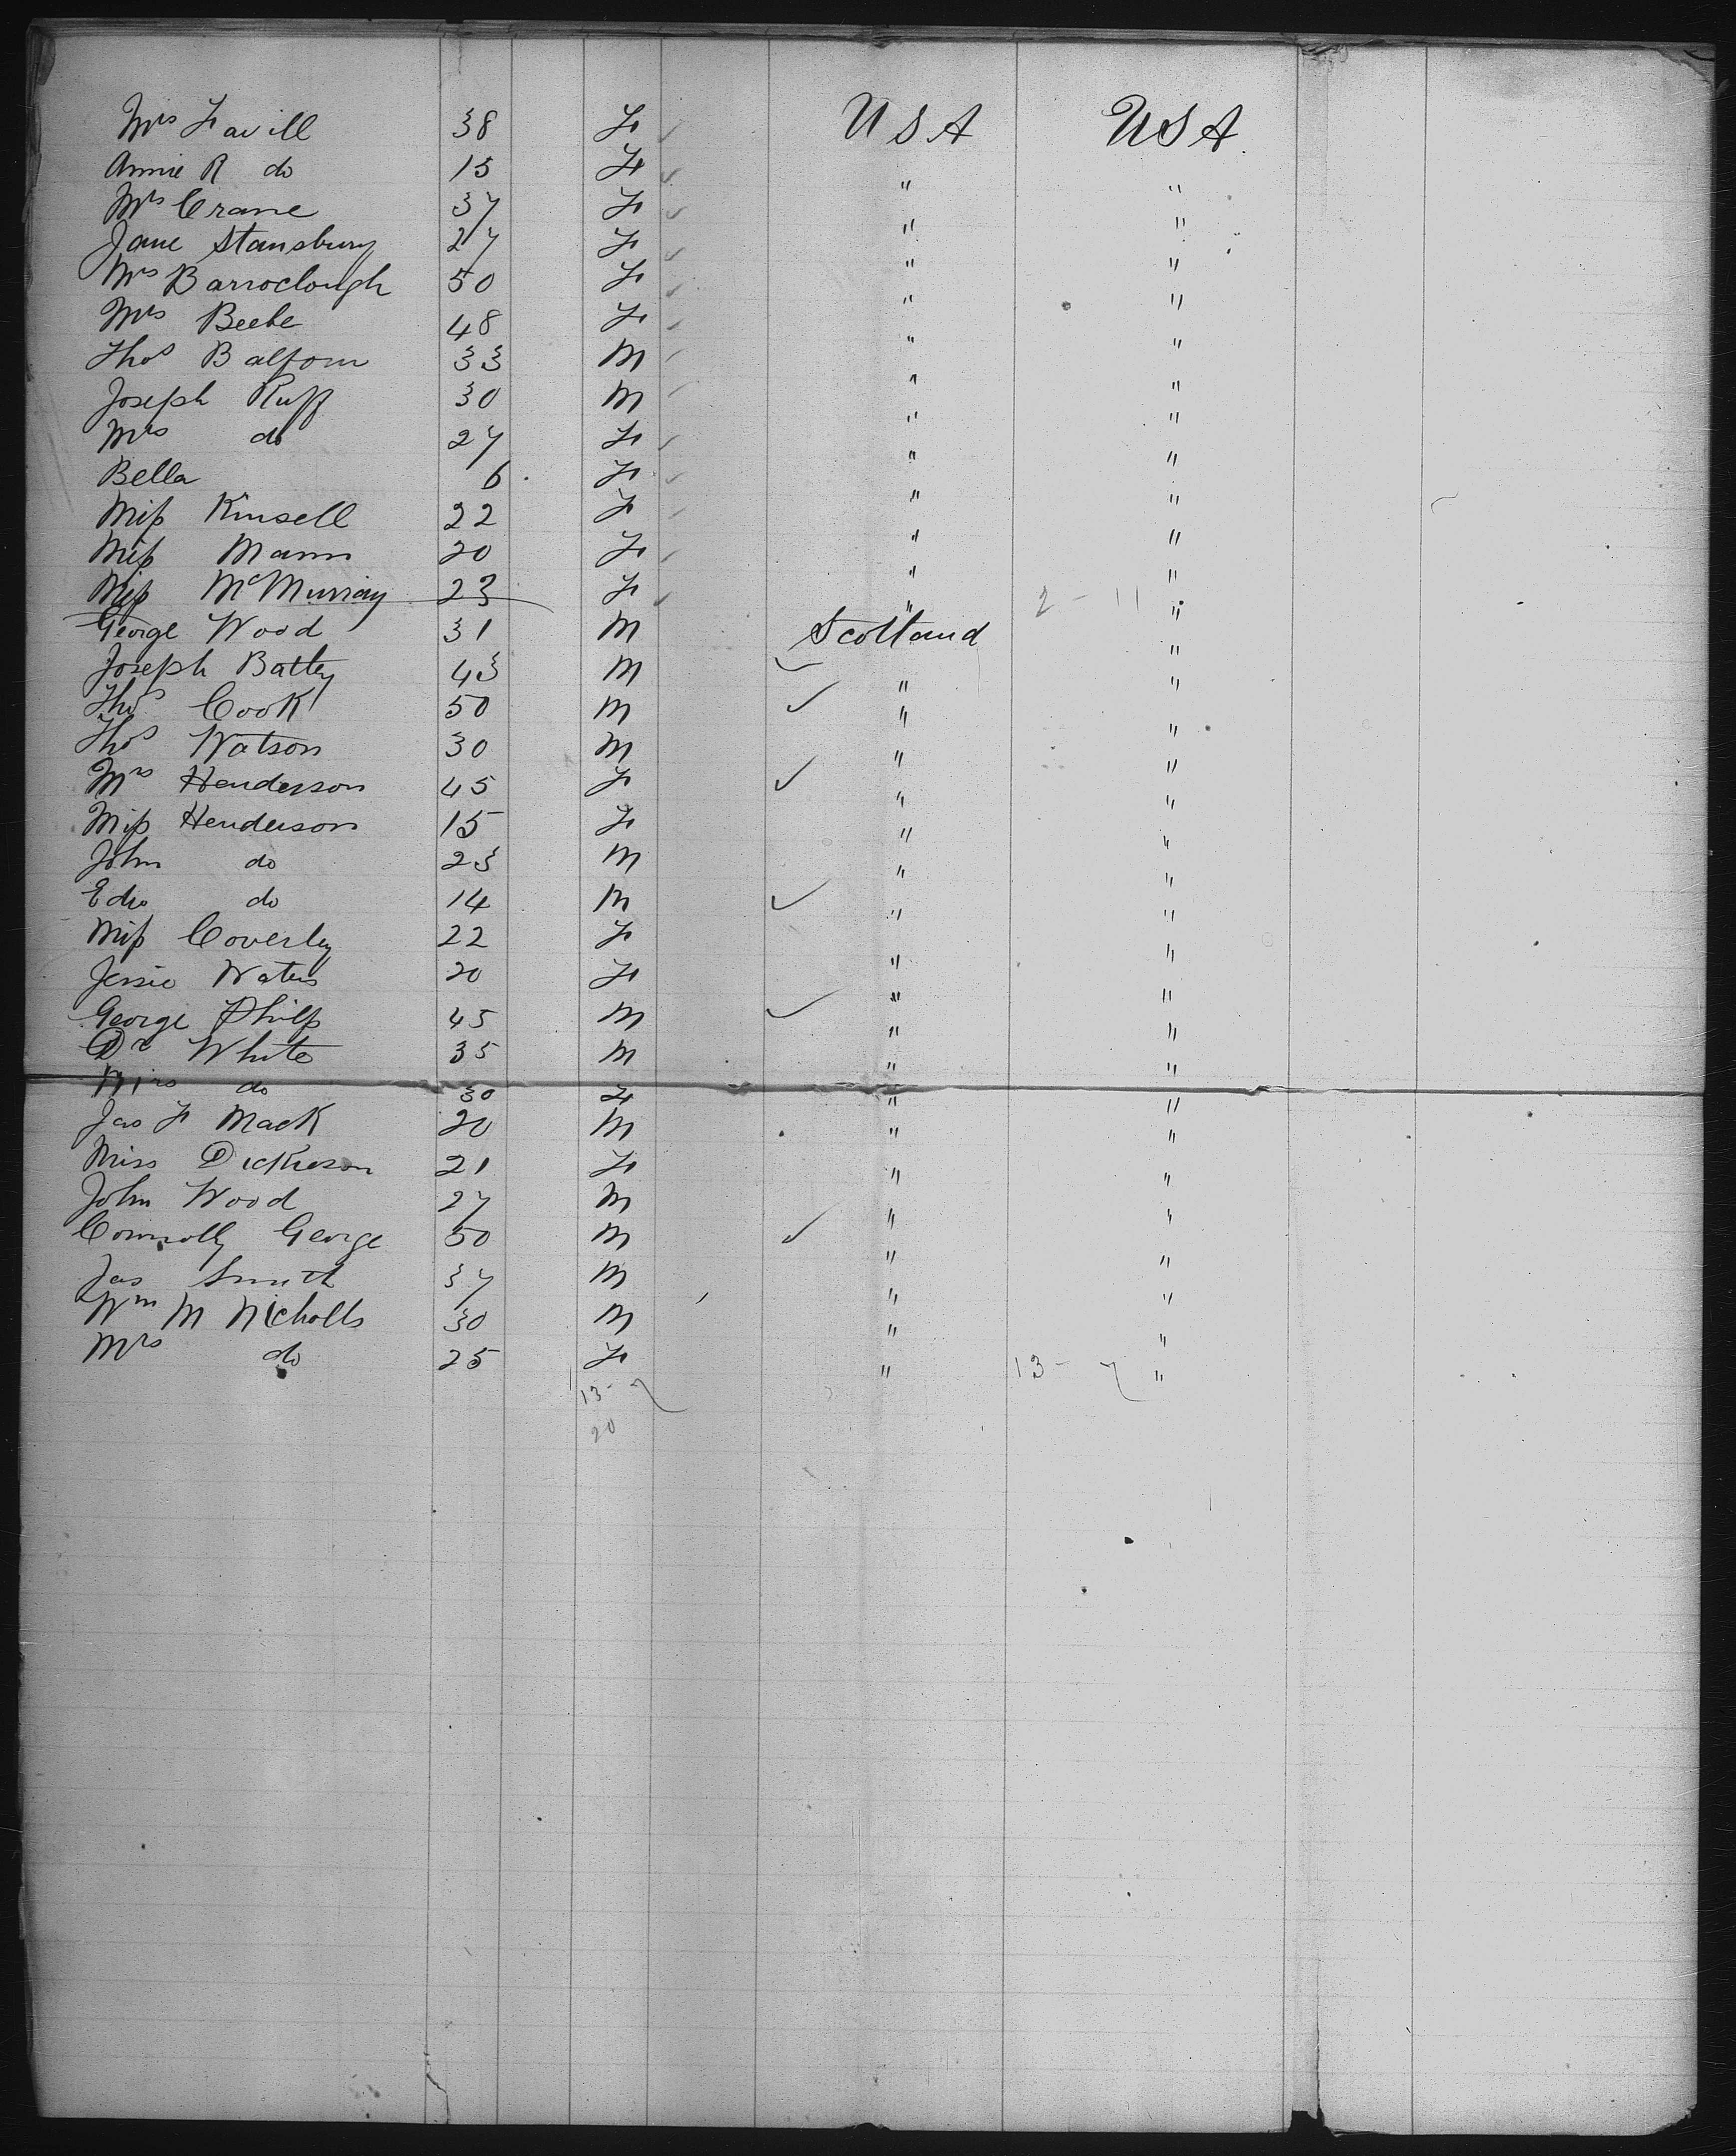 Mrs Favill 38 F USA USA
Annie R do 15 F " "
Mrs Crane 37 F " "
Jane Stansbury 27 F " "
Mrs Barroclough 50 F " "
Mrs Beebe 48 F " "
Thos Balfour 33 M " "
Joseph Ruff 30 M " "
Mrs do 27 F " "
Bella 6 F " "
Miss Kinsell 22 F " "
Miss Mann 20 F " "
Miss McMurray 23 F " 2 - 11 "
George Wood 31 M Scotland "
Joseph Batty 43 M " "
Thos Cook 50 M " "
Thos Watson 30 M " "
Mrs Henderson 45 F " "
Miss Henderson 15 F " "
John do 23 M " "
Edw do 14 M " "
Miss Coverley 22 F " "
Jessie Waters 20 F " "
George Philp 45 M " "
Dr White 35 M " "
Mrs do 30 F " "
Jas F Mack 20 M " "
Miss Dickieson 21 F " "
John Wood 27 M " "
Connolly George 50 M " "
Jas Smith 37 M " "
Wm M Nicholls 30 M " "
Mrs do 25 F " 13 - 7 "
13 - 7
20